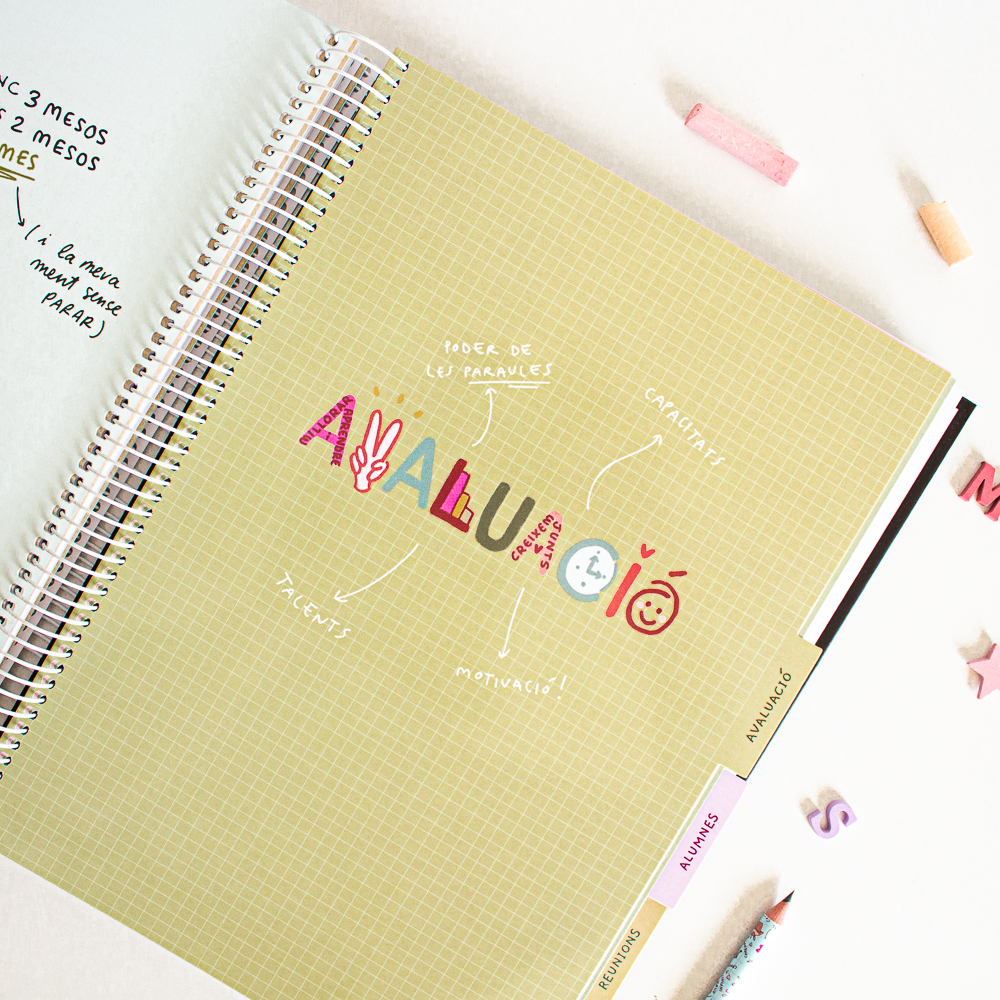 3 MESOS
2 MESOS
MES
(i la meva
ment sense
PARAR)
PODER DE
LES PARAULES
CAPACITATS
AVALUACIÓ
MILLORAR
APRENDRE
CREIXEM
JUNTS
TALENTS
MOTIVACIÓ!
AVALUACIÓ
ALUMNES
REUNIONS
M
S